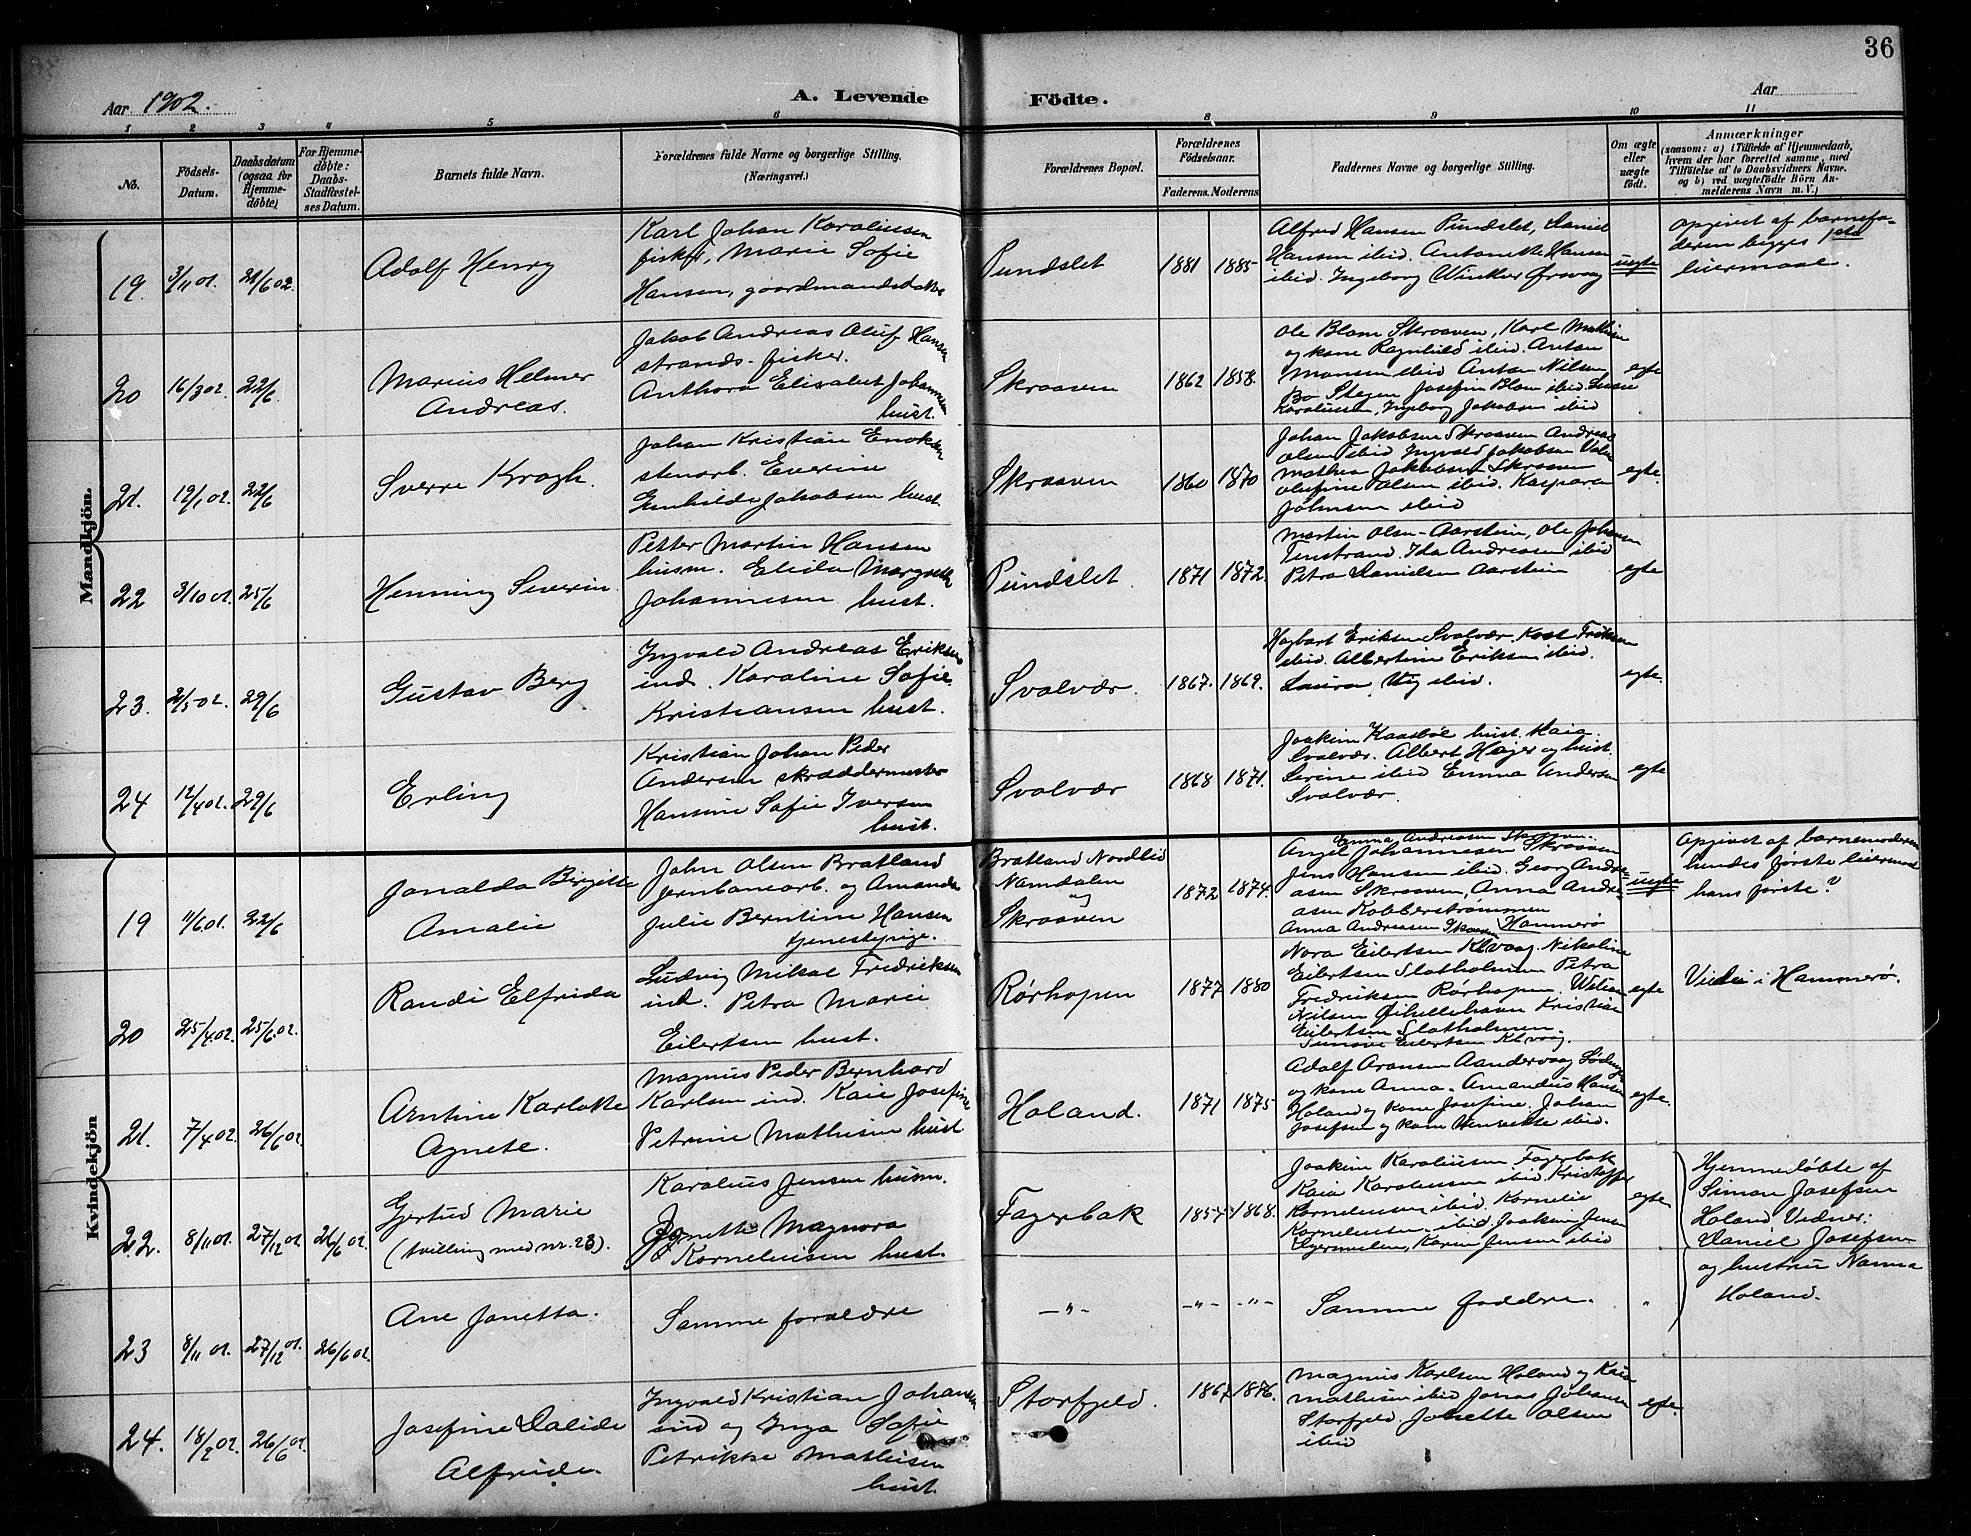 36
Aar 1902.
A. Levende Födte.
Aar
1 2 3 4 5 6 8 9 10 11
No.
Födsels-Datum.
Daabsdatum (ogsaa for Hjemme-döbte)
For Hjemme-döbte: Daabs-Stadfæstel-ses Datum.
Barnets fulde Navn.
Forældrenes fulde Navne og borgerlige Stilling.
(Næringsvei.)
Forældrenes Bopæl.
Forældrenes Födselsaar.
Faderens. Moderens.
Faddernes Navne og borgerlig Stilling.
Om ægte eller uægte födt.
Anmærkninger
(saasom: a) i Tilfælde af Hjemmedaab,
hvem der har forrettet samme, med
Tilföielse af to Daabsvidners Navne.
og b) ved uægtefödte Börn An-
melderens Navn m. V.)
Mandkjön.
19. 3/11 01. 21/6 02.
Adolf Henry
Karl Johan Karoliusen
fisker, Marie Sofie
Hansen, gaardmandsdatter
Pundslet
1881 1885
Alfred Hansen Pundslet, Daniel
Hansen ibid. Antonette Hansen
ibid. Ingeborg Winther Ørsvaag
uegte
opgivet af barnefa-
deren begges 1ste
leiermaal.
20 16/3 02. 22/6
Marius Helmer
Andreas.
Jakob Andreas Oluf Hansen
strands-fisker.
Anthora Elisabet Johannesen
hust.
Skraaven
1862 1858.
Ole Blom Skraaven, Karl Mathisen
og kone Ragnhild ibid. Anton
Monsen ibid Anton Nilsen
Bo Stegen Josefine Blom ibid.
Karoliussen, Ingeborg Jakobsen ibid
egte
21. 19/1 02. 22/6
Sverre Krogh.
Johan Kristian Enoksen
stenarb. Everine
Gunhilda Jakobsen hust.
Skraaven
1860 1870
Johan Jakobsen Skraaven Andreas
Olsen ibid Ingvald Jakobsen
Mathea Jakobsen Skraaven
Olufine Olsen ibid. Kaspara
Johnsen ibid
egte.
22 3/10 01. 25/6
Henning Severin.
Petter Martin Hansen
husm. Elida Margrethe
Johannesen hust.
Pundslet.
1871 1872.
Martin Olsen-Aarstein, Ole Johansen
Finstrand. Ida Andreasen ibid
Petra Danielsen Aarstein
egte
23. 2/5 02. 29/6
Gustav Berg
Ingvald Andreas Eriksen
ind. Karoline Sofie
Kristiansen hust.
Svolvær.
1867. 1869.
Hagbart Eriksen Svolvær,
ibid. Albertine Eriksen ibid.
Laura ibid.
egte.
24 12/4 02. 29/6
Erling
Kristian Johan Peder
Andersen skræddermester
Hansine Sofie Iversen
hust.
Svolvær
1868 1871.
Joakim Kaasbøl hust. Kaia
Svolvær. Albert Høyer og hust.
Serine ibid Emma Andersen
Svolvær.
egte
Kvindekjön
19 11/6 01. 22/6
Jonalda Birgitte
Amalie
John Olsen Bratland
jernbanearb. og Amanda
Julie Berntine Hansen
tjenestepige.
Bratland Nordlid
Namdalen
og
Skraaven
1872 1874.
Emma Andreasen Skraaven.
Angel Johannesen Skraaven
Jens Hansen ibid. Georg Andre-
asen Skraaven, Anna Andre-
asen Kobberstrømmen
Anna Andreasen Skraaven Hammerø
uegte
Opgivet af barnemoderen
hendes første leiermaal
hans første?
20 25/4 02. 25/6 02.
Randi Elfrida
Ludvig Mikal Fredriksen
ind. Petra Marie
Eilertsen hust.
Rørhopen
1877 1880
Nora Eilertsen Klvaag. Nikoline
Eilertsen Slotholmen Petra
Fredriksen Rørhopen.
Nilsen Kristian
Eilertsen Slotholmen.
Eilertsen Klvaag.
egte
Viede i Hammerø.
21. 7/4 02. 26/6 02.
Arntine Karlotte
Agnete.
Magnus Peder Bernhard
Karlsen ind. Kaia Josefine
Petrine Mathisen hust
Holand.
1871 1875
Adolf Aronsen Aandervaag
og kone Anna. Amandus Hansen
Holand og kone Josefine. Johan
Josefsen og kone Henrikke ibid.
egte.
22. 8/11 01. 27/12 01. 26/6 02.
Gjertud Marie
(tvilling med nr. 23).
Karolius Jensen husm.
Jonette Magnora
Korneliusen hust.
Fagerbak
1857 1868.
Joakim Karoliusen Fagerbak
Kaia Karoliusen ibid. Kristoffer
Korneliusen ibid. Kornelie
Korneliusen ibid. Joakim Jensen
Karen Jensen ibid
egte
Hjemmedøbte af
Simon Josefsen
Holand Vidner:
Daniel Josefsen
og hustru Nanna
Holand.
23 8/11 01. 27/12 01. 26/6 02.
Ane Janetta.
Samme foraeldre
— " — — " — — " —
Samme faddere.
"
24. 18/2 02. 26/6 02.
Josefine Dalide
Alfride.
Ingvald Kristian Johansen
ind og Inga Sofie
Petrikke Mathisen
hust.
Storfjeld.
1867 1876.
Magnus Karlsen Holand og Kaia
Mathisen ibid Jonas Johansen
Storfjeld, Jonette Olsen
ibid
egte.